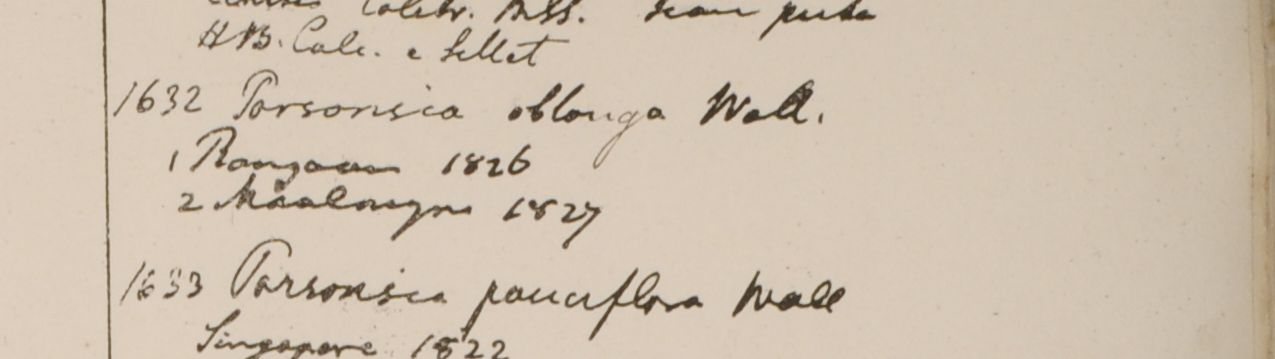 Colebr. Mss.
HB. Calc. e Sillet
1632 Parsonsia oblonga Wall.
1 Rangoon 1826
2 Moalmyne 1827
1633 Parsonsia pauciflora Wall
Singapore 1822